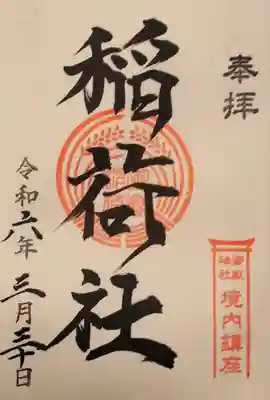 奉拝
稲荷社
境内鎮座
令和六年 三月三十日